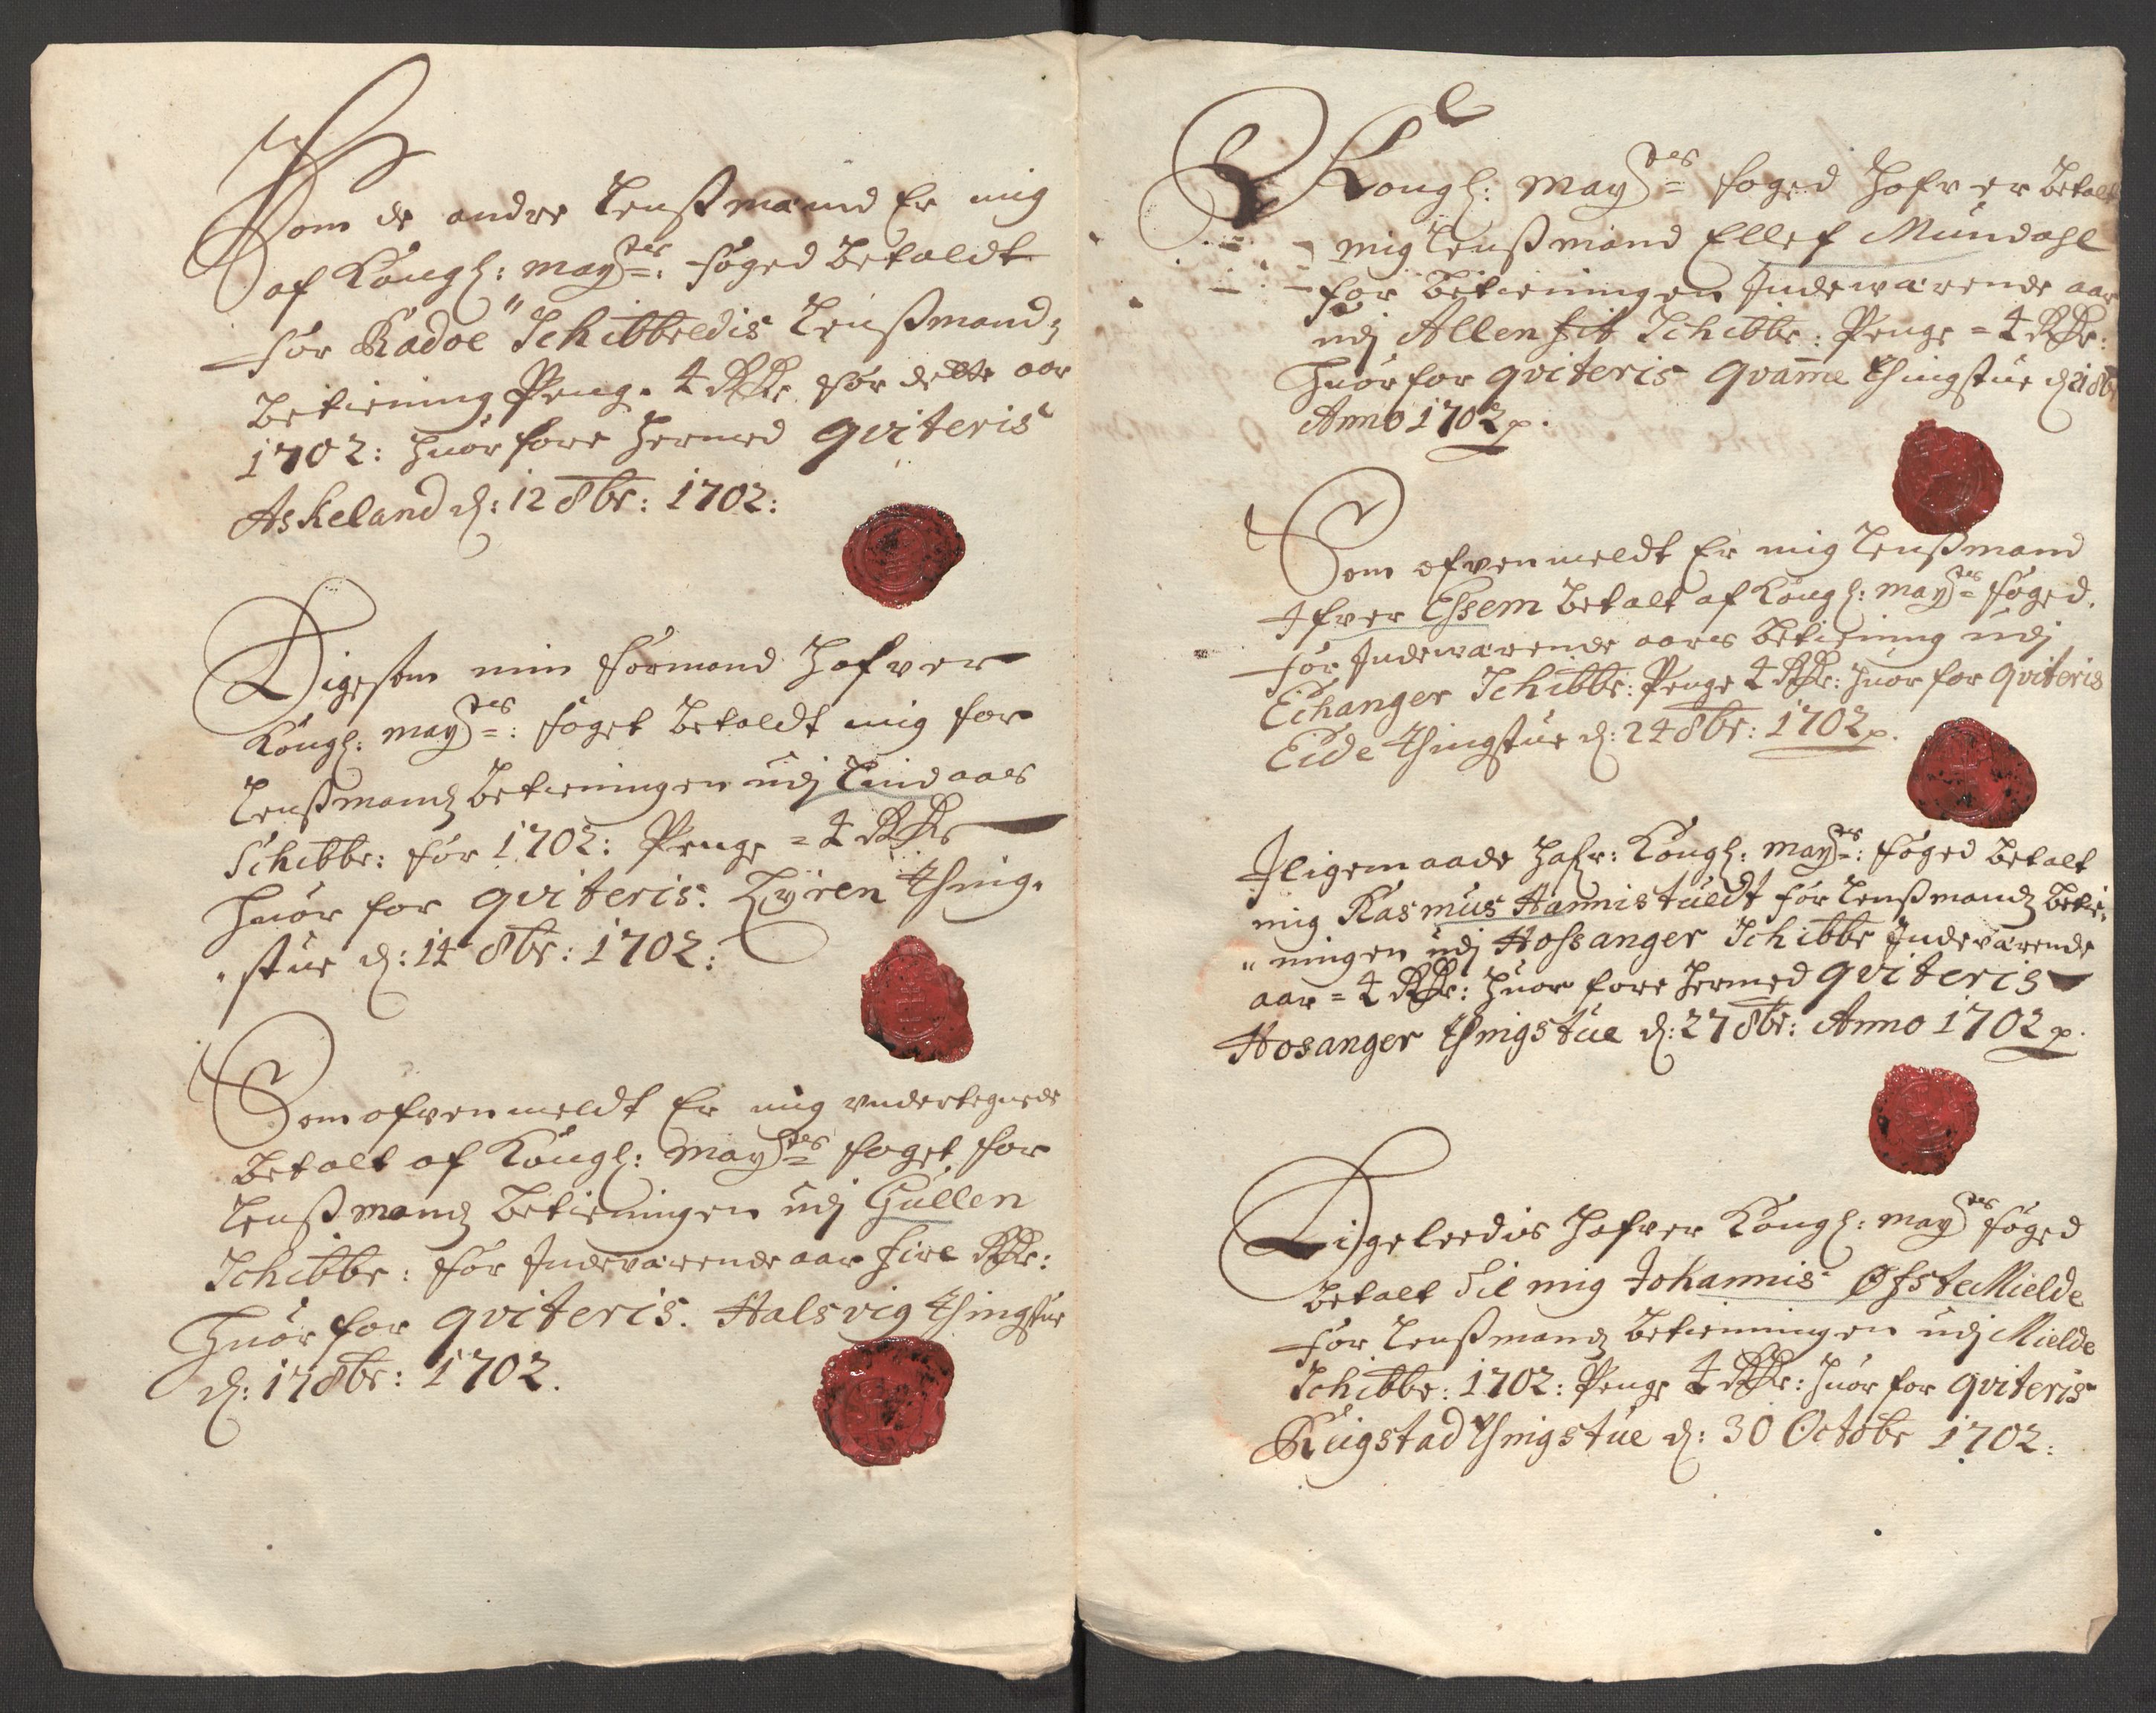 Som de andre Lenßmænd Er mig
af Kongl: may:ts foged betaldt
for Radoe Schibbredis Lenßmands
betiening Peng. 4 Rdr for dette aar
1702: huorfore hermed qviteris
Askeland d: 12 8br: 1702:
Ligesom min formand hafver
Kongl: may:ts foget betaldt mig for
Lenßmands betieningen udj Lindaaes
Schibbr: for 1702: Penge = 4 Rdr
huor for qviteris. Fyren thing-
"stue d: 14 8br: 1702:
Som ofvenmeldt Er mig undertegnede
betalt af Kongl: may:ts foget for
Lenßmands betieningen udj Gullen
Schibbr: for Indeværende aar fire Rdr:
huor for qviteris. Halsvig thingstue
d: 17 8br: 1702.
Kongl: may:ts foged hafver betalt
mig Lenßmand Ellef Mundahl
for betieningen Indewærende aar
udj Allenfit Schibbr: Penge = 4 Rdr:
huorfor qviteris Qvamme thingstue d: 21 8b
Anno 1702 p.
Som ofvenmeldt Er mig Lenßmand
Ifver Essem betalt af Kongl: may:ts foged.
for Indewærende aares betiening udj
Echanger Schibbr: Penge 4 Rdr: huor for qviteris
Eide thingstue d: 24 8br: 1702 p.
Iligemaade hafr: Kongl: may:ts: foged betalt
mig Rasmus Hannistuedt for Lenßmands betie-
"ningen udj Hossanger Schibbr Indeværende
aar = 4 Rdr: huor fore hermed qviteris
Hosanger thingstue d: 27 8br: Anno 1702 p.
Ligeleedis hafver Kongl: may:ts foged
betalt til mig Johannis ØfsteMielde
for Lenßmands betieningen udj Mielde
Schibbr: 1702: Penge 4 Rdr: huor for qviteris
Ruigstad thingstue d: 30 Octobr 1702: